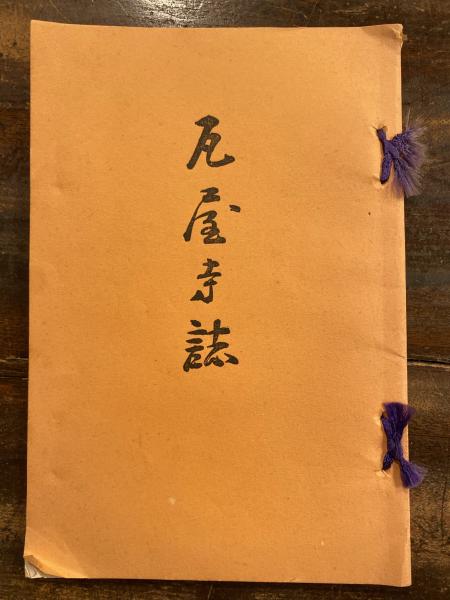 瓦屋寺誌